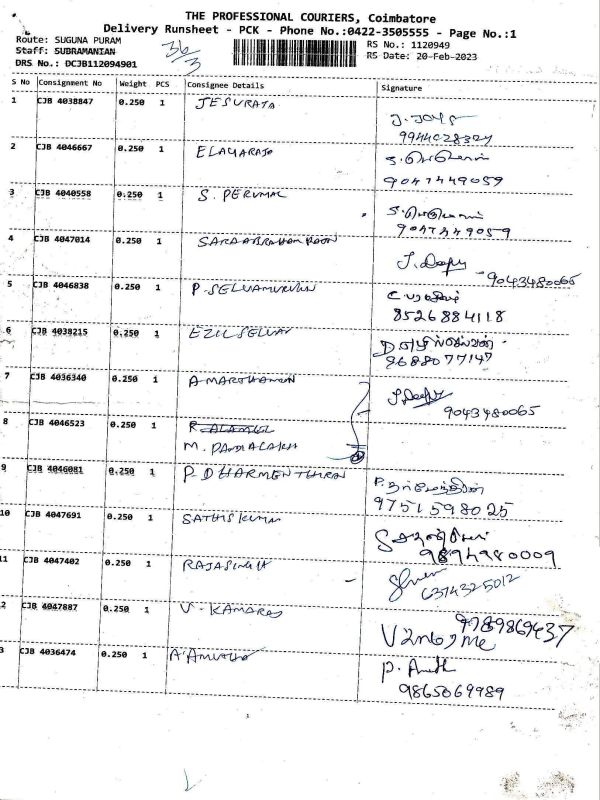 THE PROFESSIONAL COURIERS, Coimbatore
Delivery Runsheet - PCK - Phone No.:0422-3505555 - Page No.:1
Route: SUGUNA PURAM
RS No.: 1120949
Staff: SUBRAMANIAN
36/3
RS Date: 20-Feb-2023
DRS No.: DCJB112094901
S No Consignment No Weight PCS Consignee Details Signature
1 CJB 4038847 0.250 1 JESURAJA
9944028324
2 CJB 4046667 0.250 1 ELAYARAJA
9047449059
3 CJB 4040558 0.250 1 S. PERUMAL
9047449059
4 CJB 4047014 0.250 1
J. Deepu - 9043480065
5 CJB 4046838 0.250 1 P. SELVAMURUGAN
8526884118
6 CJB 4038215 0.250 1 EZILSELVAN
9688077147
7 CJB 4036340 0.250 1 A MARUTHAMAN
J. Deepu
9043480065
8 CJB 4046523 0.250 1
M. PANDIALAKH
9 CJB 4046081 0.250 1 P. DHARMENTHIRAN
9751598025
10 CJB 4047691 0.250 1 SATHISKUMAR
9894980009
11 CJB 4047402 0.250 1 RAJASINGH
6374325012
2 CJB 4047887 0.250 1 V. KAMARAJ
9789869437
3 CJB 4036474 0.250 1
9865069989
1